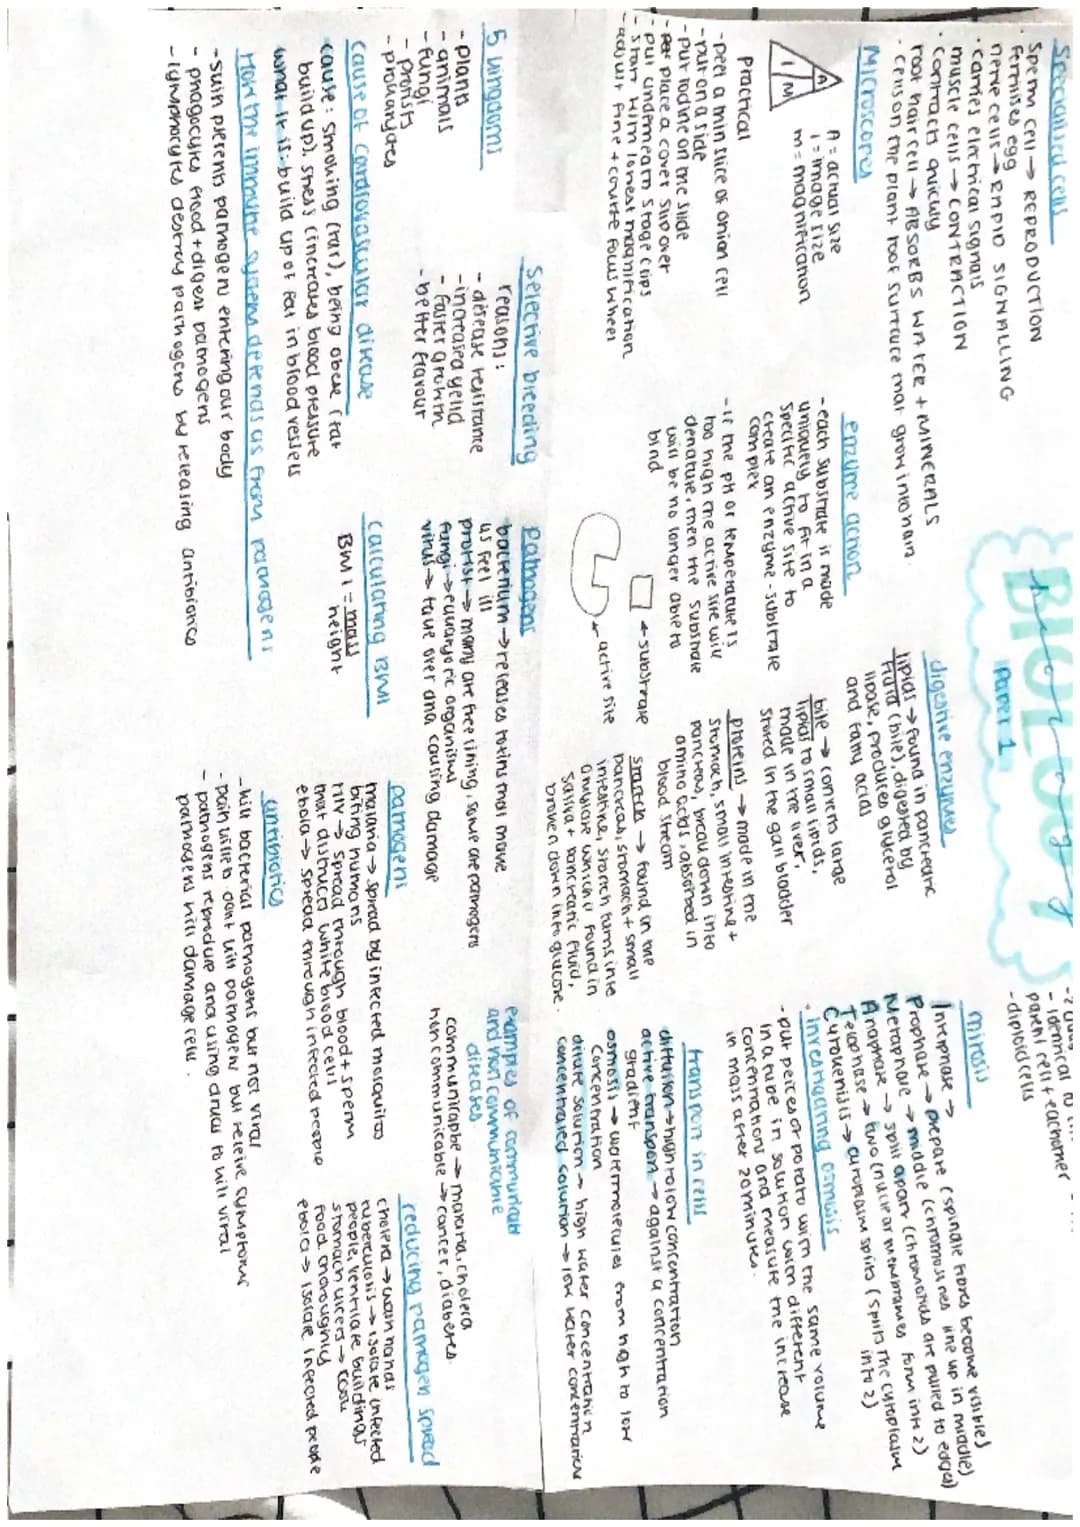 BIOLOGY
Paper 1
Specialised cells
· Sperm cell → REPRODUCTION
fertilises egg
nerve cells → RAPID SIGNALLING
· carries electrical signals
muscle cells → CONTRACTION
· contracts quickly
root hair cell → ABSORBS WATER + MINERALS
· cells on the plant root surface that grow into hair
Microscopes
A
I M
A = actual size
I = image size
m = magnification
Practical
- peel a thin slice of onion cell
- put on a slide
- put iodine on the slide
- place a cover slip over
- put underneath stage clips
- start with lowest magnification
- adjust fine + course focus wheel
enzyme action
- each substrate is made
uniquely to fit in a
specific active site to
create an enzyme-substrate
complex
- if the pH or temperature is
too high the active site will
denature, then the substrate
will be no longer able to
bind
← substrate
← active site
digestive enzymes
lipids → found in pancreatic
fluid (bile), digested by
lipase, produces glycerol
and fatty acids
bile → converts large
lipids to small lipids,
made in the liver,
stored in the gall bladder
proteins → made in the
stomach, small intestine +
pancreas, break down into
amino acids, absorbed in
blood stream
starch → found in the
pancreas, stomach + small
intestine, starch turns into
amylase which is found in
saliva + pancreatic fluid,
broken down into glucose.
- identical to
parent cell + eachother
- diploid cells
mitosis
Interphase →
Prophase → prepare (spindle fibres become visible)
Metaphase → middle (chromosines line up in middle)
Anaphase → split apart (chromatids are pulled to edges)
Telophase → two (nuclear membranes form into 2)
Cytokenisis → cytoplasm splits (splits the cytoplasm
into 2)
· investigating osmosis
- put peices of potato with the same volume
in a tube in solution with different
concentrations and measure the increase
in mass after 20 minutes.
transport in cells
diffusion → high to low concentration
active transport → against a concentration
gradient
osmosis → water molecules from high to low
concentration
dilute solution → high water concentration
concentrated solution → low water concentration
5 kingdoms
- plants
- animals
- fungi
- protists
- prokaryotes
Selective breeding
reasons:
- disease resistance
- increased yeild
- faster growth
- better flavour
Pathogens
bacterium → releases toxins that make
us feel ill
protist → many are free living, some are pathogens
fungi → eukaryotic organisms
virus → take over and causing damage
examples of communicable
and non communicable
diseases
communicable → malaria, cholera
non communicable → cancer, diabetes.
Cause of cardiovascular disease
cause: smoking (tar), being obese (fat
build up), stress (increases blood pressure
what it is: build up of fat in blood vessels
Calculating BMI
BMI = mass
height
pathogens
malaria → spread by infected mosquitos
biting humans
HIV → spread through blood + sperm
that distructs white blood cells
ebola → spread through infected people
reducing pathogen spread
cholera → wash hands
tuberculosis → isolate infected
people, ventilate buildings
stomach ulcers → cook
food thoroughly
ebola → isolate infected people
How the immune system defends us from pathogens
- skin prevents pathogens entering our body
- phagocytes
- lymphocytes destroy pathogens by releasing antibiotics
antibiotics
- kill bacterial pathogens but not viral
- pain killers dont kill pathogens but releive symptoms
- pathogens reproduce and using drugs to kill viral
pathogens will damage cells.